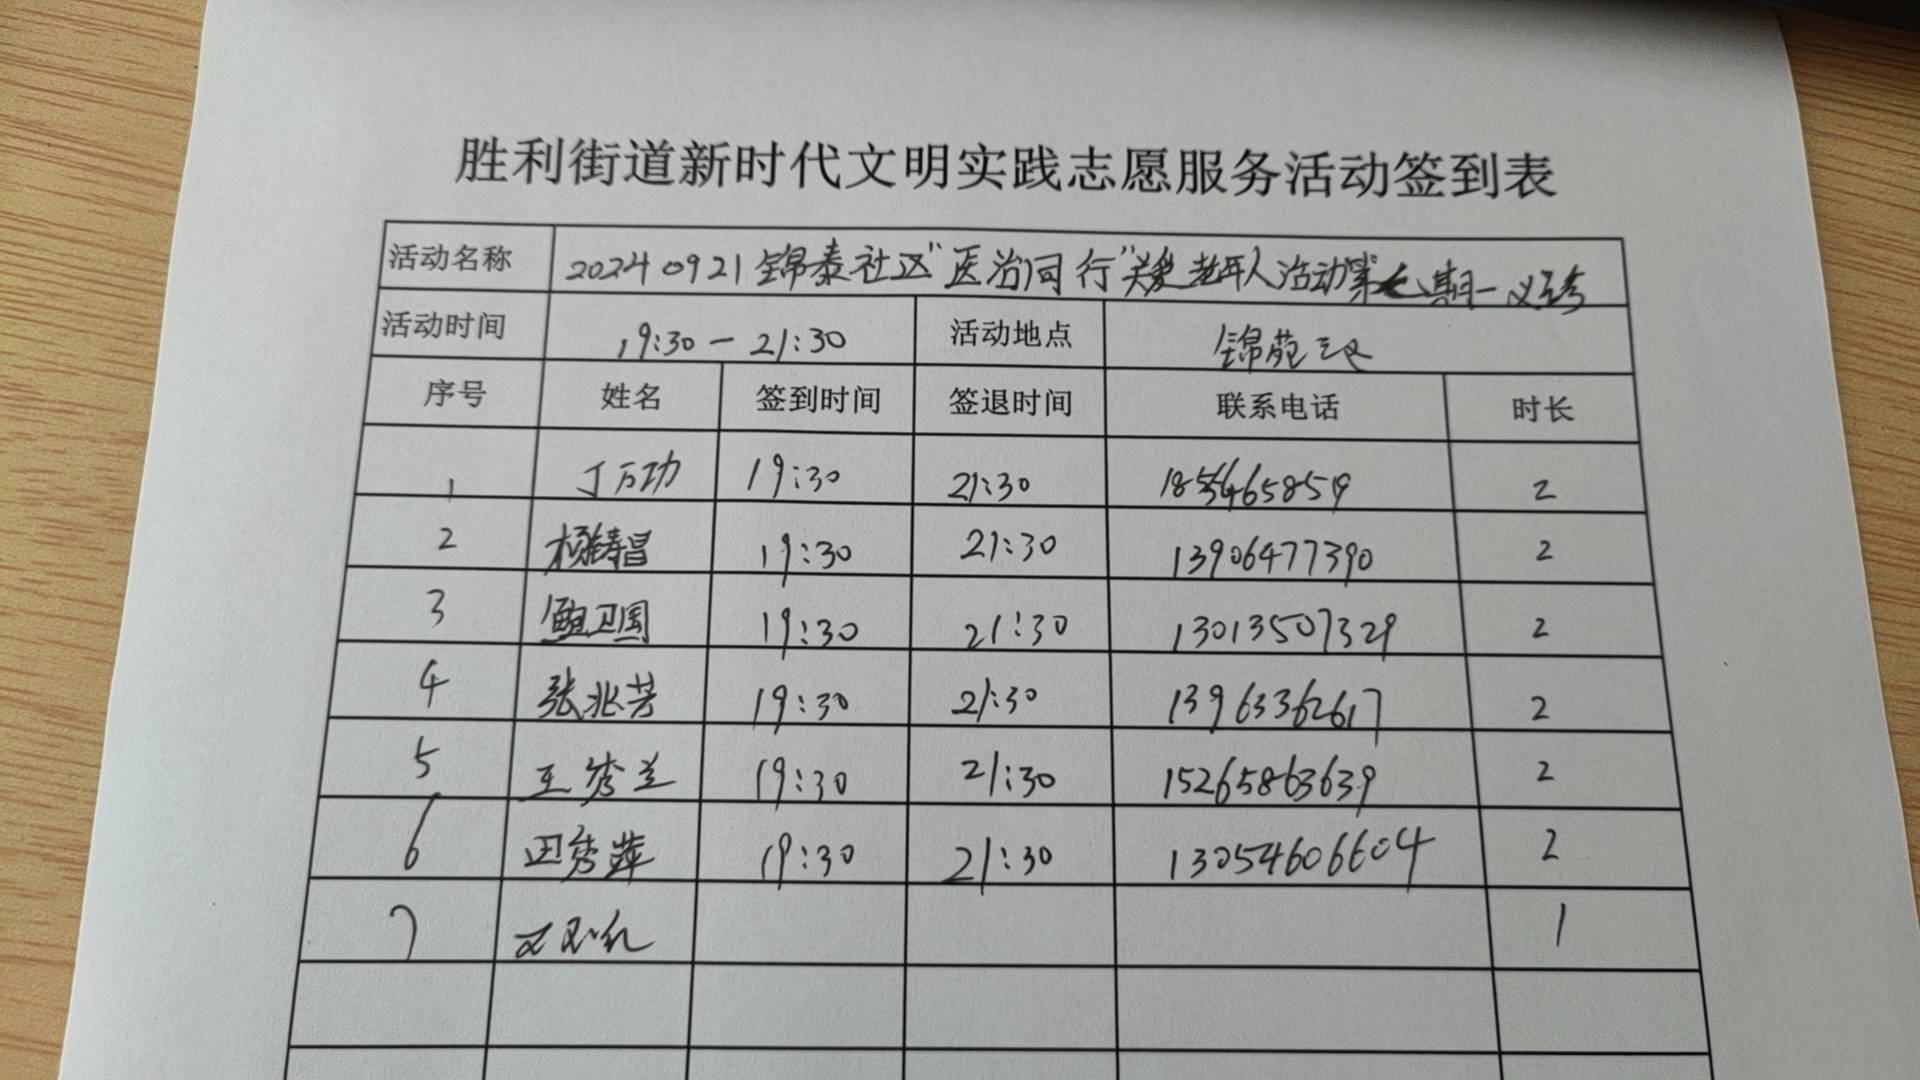 胜利街道新时代文明实践志愿服务活动签到表
活动名称 20240921锦泰社区"医治同行"关爱老年人活动第七期-义诊
活动时间 19:30-21:30 活动地点 锦苑三区
序号 姓名 签到时间 签退时间 联系电话 时长
1 丁万功 19:30 21:30 2
2 杨铸昌 19:30 21:30 13906477390 2
3 鲍卫国 19:30 21:30 13013507329 2
4 张兆芳 19:30 21:30 13963362617 2
5 王秀兰 19:30 21:30 15265863639 2
6 田秀萍 19:30 21:30 13054606604 2
7 1